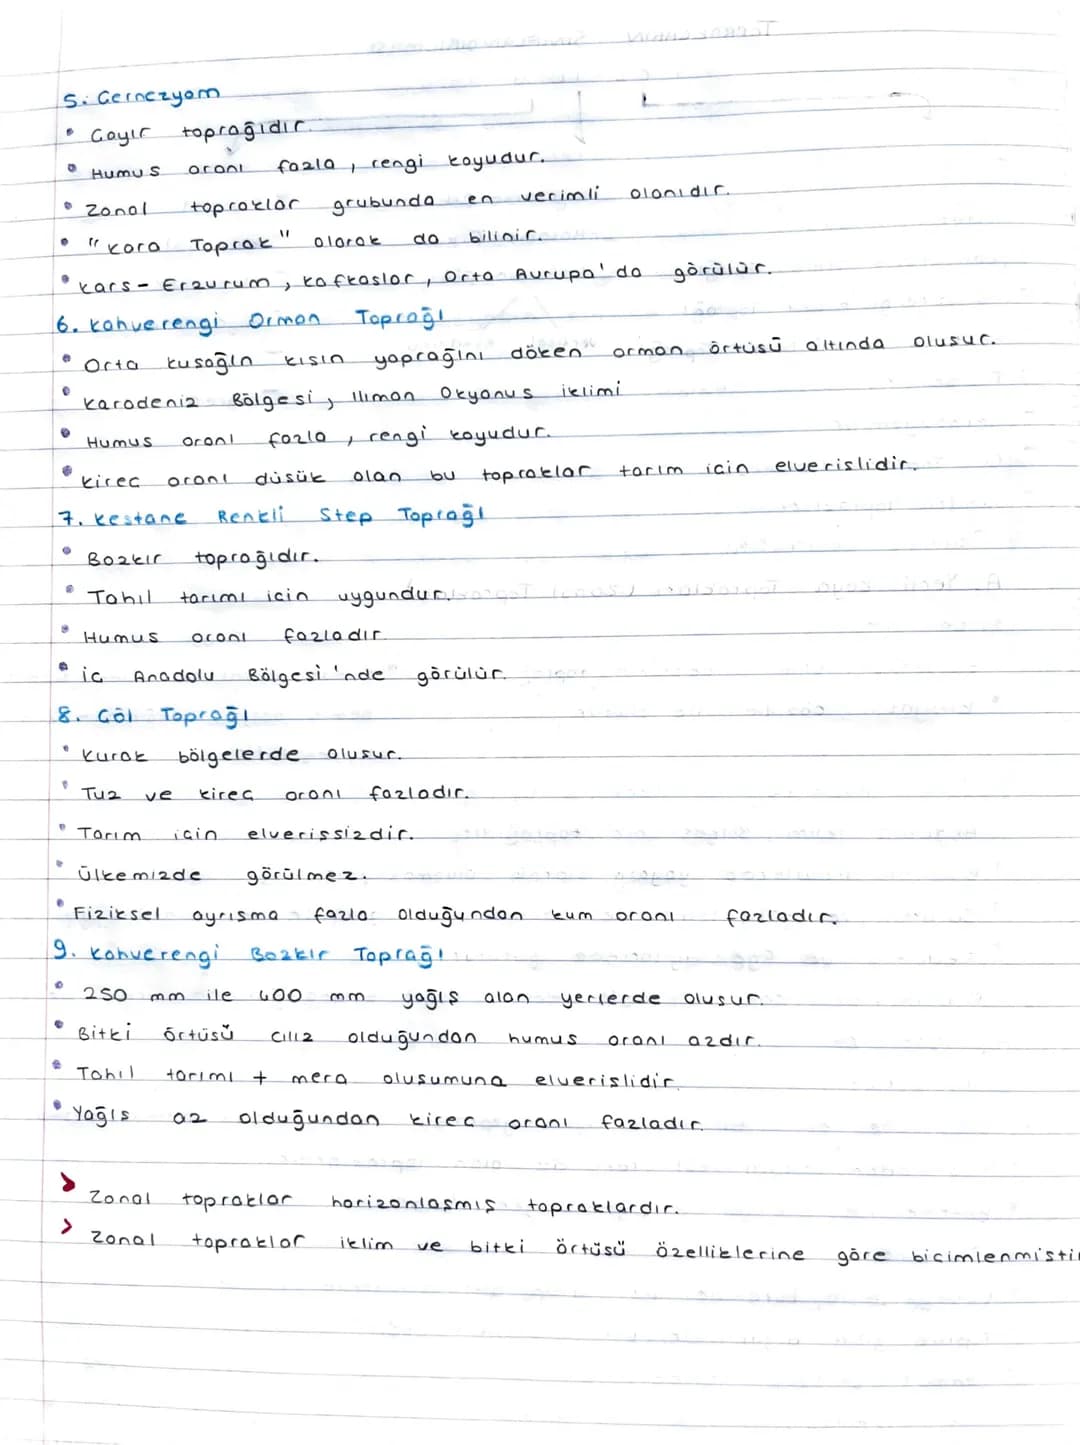 5. Çernezyom
• Çayır toprağıdır.
• Humus oranı fazla, rengi koyudur.
• Zonal topraklar grubunda en verimli olanıdır.
• "Kara Toprak" olarak da bilinir.
• Kars - Erzurum, Kafkaslar, Orta Avrupa'da görülür.
6. Kahverengi Orman Toprağı
• Orta kuşağın kışın yaprağını döken orman örtüsü altında oluşur.
• Karadeniz Bölgesi, Ilıman Okyanus iklimi
• Humus oranı fazla, rengi koyudur.
• Kireç oranı düşük olan bu topraklar tarım için elverişlidir.
7. Kestane Renkli Step Toprağı
• Bozkır toprağıdır.
• Tahıl tarımı için uygundur.
• Humus oranı fazladır.
• İç Anadolu Bölgesi'nde görülür.
8. Çöl Toprağı
• Kurak bölgelerde oluşur.
• Tuz ve kireç oranı fazladır.
• Tarım için elverişsizdir.
• Ülkemizde görülmez.
• Fiziksel ayrışma fazla olduğundan kum oranı fazladır.
9. Kahverengi Bozkır Toprağı
• 250 mm ile 400 mm yağış alan yerlerde oluşur.
• Bitki örtüsü cılız olduğundan humus oranı azdır.
• Tahıl tarımı + mera oluşumuna elverişlidir.
• Yağış az olduğundan kireç oranı fazladır.
> Zonal topraklar horizonlaşmış topraklardır.
> Zonal topraklar iklim ve bitki örtüsü özelliklerine göre biçimlenmiştir